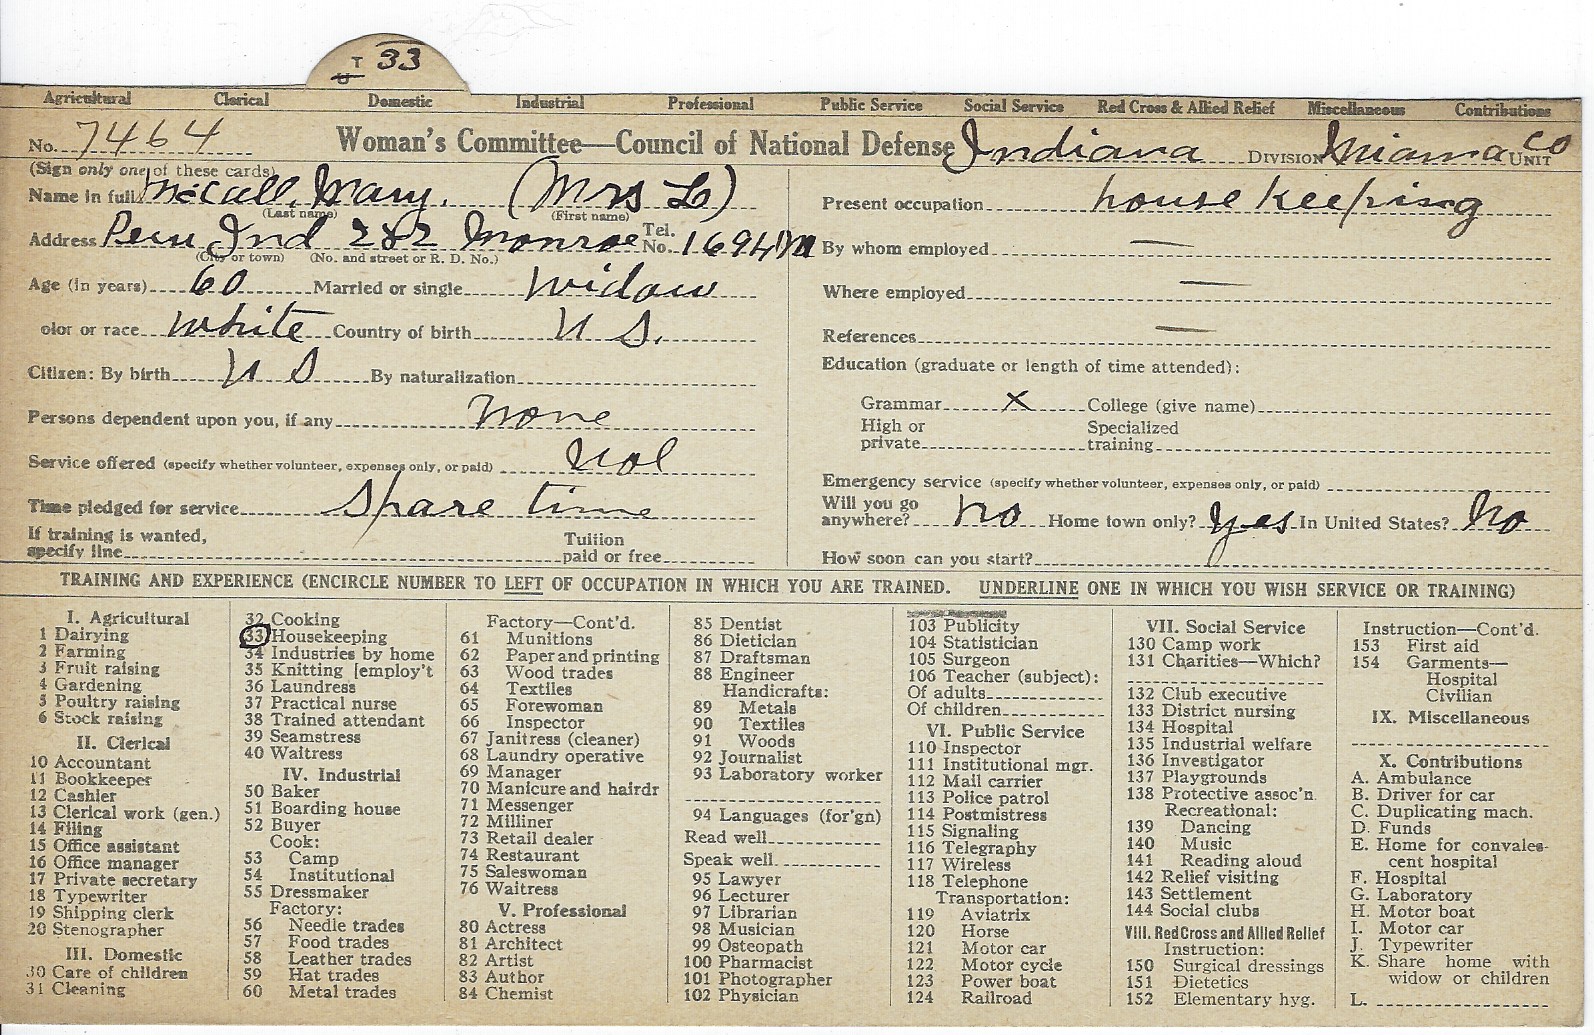 T 33
Agricultural Clerical Domestic Industrial Professional Public Service Social Service Red Cross & Allied Relief Miscellaneous Contributions
No. 7464 Woman's Committee—Council of National Defense Indiana DIVISION Miami Co UNIT
(Sign only one of these cards)
Name in full McCall, Mary. (Mrs L)
(Last name) (First name)
Address Peru, Ind 282 Monroe Tel. No. 1694M
(City or town) (No. and street or R. D. No.)
Age (in years) 60 Married or single Widow
olor or race White Country of birth U S.
Citizen: By birth U S By naturalization
Persons dependent upon you, if any None
Service offered (specify whether volunteer, expenses only, or paid) Vol
Time pledged for service Spare time
If training is wanted,
specify line Tuition
paid or free
Present occupation housekeeping
By whom employed —
Where employed —
References —
Education (graduate or length of time attended):
Grammar X College (give name)
High or Specialized
private training
Emergency service (specify whether volunteer, expenses only, or paid)
Will you go
anywhere? No Home town only? yes In United States? No
How soon can you start?
TRAINING AND EXPERIENCE (ENCIRCLE NUMBER TO LEFT OF OCCUPATION IN WHICH YOU ARE TRAINED. UNDERLINE ONE IN WHICH YOU WISH SERVICE OR TRAINING)
I. Agricultural
1 Dairying
2 Farming
3 Fruit raising
4 Gardening
5 Poultry raising
6 Stock raising
II. Clerical
10 Accountant
11 Bookkeeper
12 Cashier
13 Clerical work (gen.)
14 Filing
15 Office assistant
16 Office manager
17 Private secretary
18 Typewriter
19 Shipping clerk
20 Stenographer
III. Domestic
30 Care of children
31 Cleaning
32 Cooking
33 Housekeeping
34 Industries by home
35 Knitting [employ't
36 Laundress
37 Practical nurse
38 Trained attendant
39 Seamstress
40 Waitress
IV. Industrial
50 Baker
51 Boarding house
52 Buyer
Cook:
53 Camp
54 Institutional
55 Dressmaker
Factory:
56 Needle trades
57 Food trades
58 Leather trades
59 Hat trades
60 Metal trades
Factory—Cont'd.
61 Munitions
62 Paper and printing
63 Wood trades
64 Textiles
65 Forewoman
66 Inspector
67 Janitress (cleaner)
68 Laundry operative
69 Manager
70 Manicure and hairdr
71 Messenger
72 Milliner
73 Retail dealer
74 Restaurant
75 Saleswoman
76 Waitress
V. Professional
80 Actress
81 Architect
82 Artist
83 Author
84 Chemist
85 Dentist
86 Dietician
87 Draftsman
88 Engineer
Handicrafts:
89 Metals
90 Textiles
91 Woods
92 Journalist
93 Laboratory worker
94 Languages (for'gn)
Read well
Speak well
95 Lawyer
96 Lecturer
97 Librarian
98 Musician
99 Osteopath
100 Pharmacist
101 Photographer
102 Physician
103 Publicity
104 Statistician
105 Surgeon
106 Teacher (subject):
Of adults
Of children
VI. Public Service
110 Inspector
111 Institutional mgr.
112 Mail carrier
113 Police patrol
114 Postmistress
115 Signaling
116 Telegraphy
117 Wireless
118 Telephone
Transportation:
119 Aviatrix
120 Horse
121 Motor car
122 Motor cycle
123 Power boat
124 Railroad
VII. Social Service
130 Camp work
131 Charities—Which?
132 Club executive
133 District nursing
134 Hospital
135 Industrial welfare
136 Investigator
137 Playgrounds
138 Protective assoc'n.
Recreational:
139 Dancing
140 Music
141 Reading aloud
142 Relief visiting
143 Settlement
144 Social clubs
VIII. Red Cross and Allied Relief
Instruction:
150 Surgical dressings
151 Dietetics
152 Elementary hyg.
Instruction—Cont'd.
153 First aid
154 Garments—
Hospital
Civilian
IX. Miscellaneous
X. Contributions
A. Ambulance
B. Driver for car
C. Duplicating mach.
D. Funds
E. Home for convales-
cent hospital
F. Hospital
G. Laboratory
H. Motor boat
I. Motor car
J. Typewriter
K. Share home with
widow or children
L.